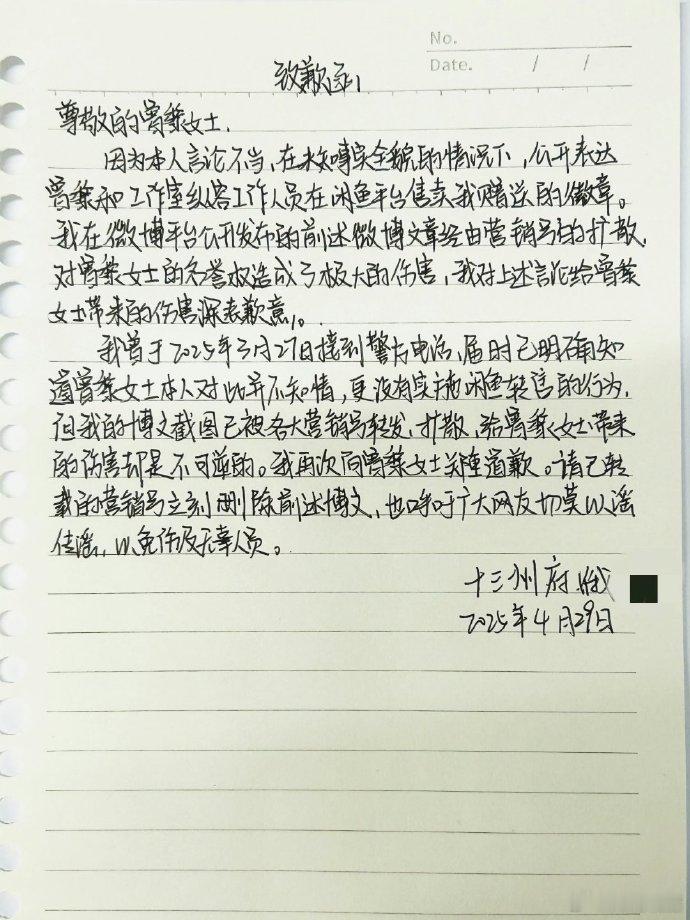 No.
Date. / /
致歉函
尊敬的曾黎女士,
因为本人言论不当,在未知事实全貌的情况下,公开表达
曾黎和工作室纵容工作人员在闲鱼平台售卖我赠送的徽章。
我在微博平台公开发布的前述微博文章经由营销号的扩散,
对曾黎女士的名誉权造成了极大的伤害,我对上述言论给曾黎
女士带来的伤害深表歉意。
我曾于2025年3月27日接到警方电话,届时已明确知
道曾黎女士本人对此并不知情,更没有实施闲鱼转售的行为,
但我的博文截图已被各大营销号转发、扩散,给曾黎女士带来
的伤害却是不可逆的。我再次向曾黎女士关陲道歉。请已转
载的营销号立刻删除前述博文,也呼吁广大网友切莫以谣
传谣,以免伤及无辜人员。
十三州府
2025年4月29日